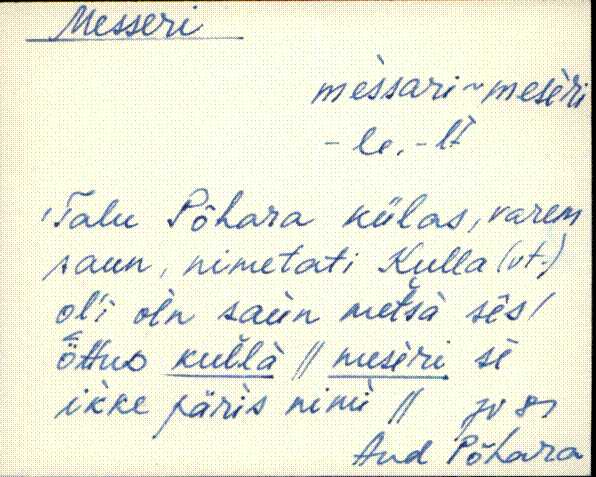 Messeri
mèssari ~ mesèri
- le, - lt
'Talu Põhara külas, varem
saun, nimetati Kulla (vt.)
ol'i oln saùn metsà sês /
kullà // mesèri sè
ikke päris nimì //
And Põhara